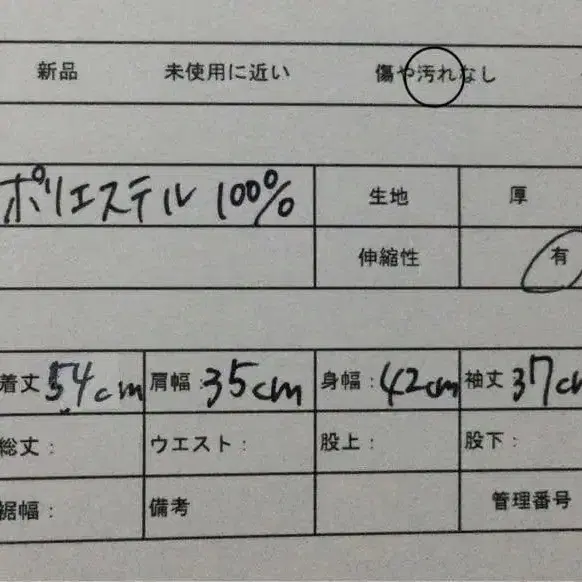 新品 未使用に近い 傷や汚れなし
ポリエステル 100% 生地 厚
伸縮性 有
着丈 54cm 肩幅:35cm 身幅:42cm 袖丈 37cm
総丈: ウエスト: 股上: 股下:
裾幅: 備考 管理番号